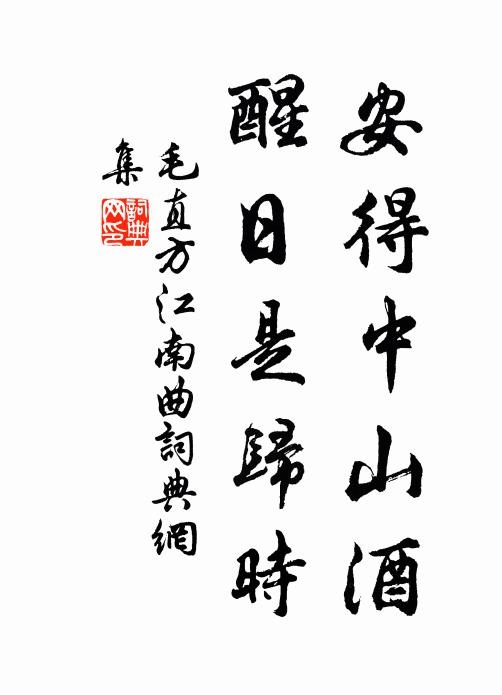 安得中山酒
醒日是歸時
毛直方江南曲詞典網
集
詞典
网印